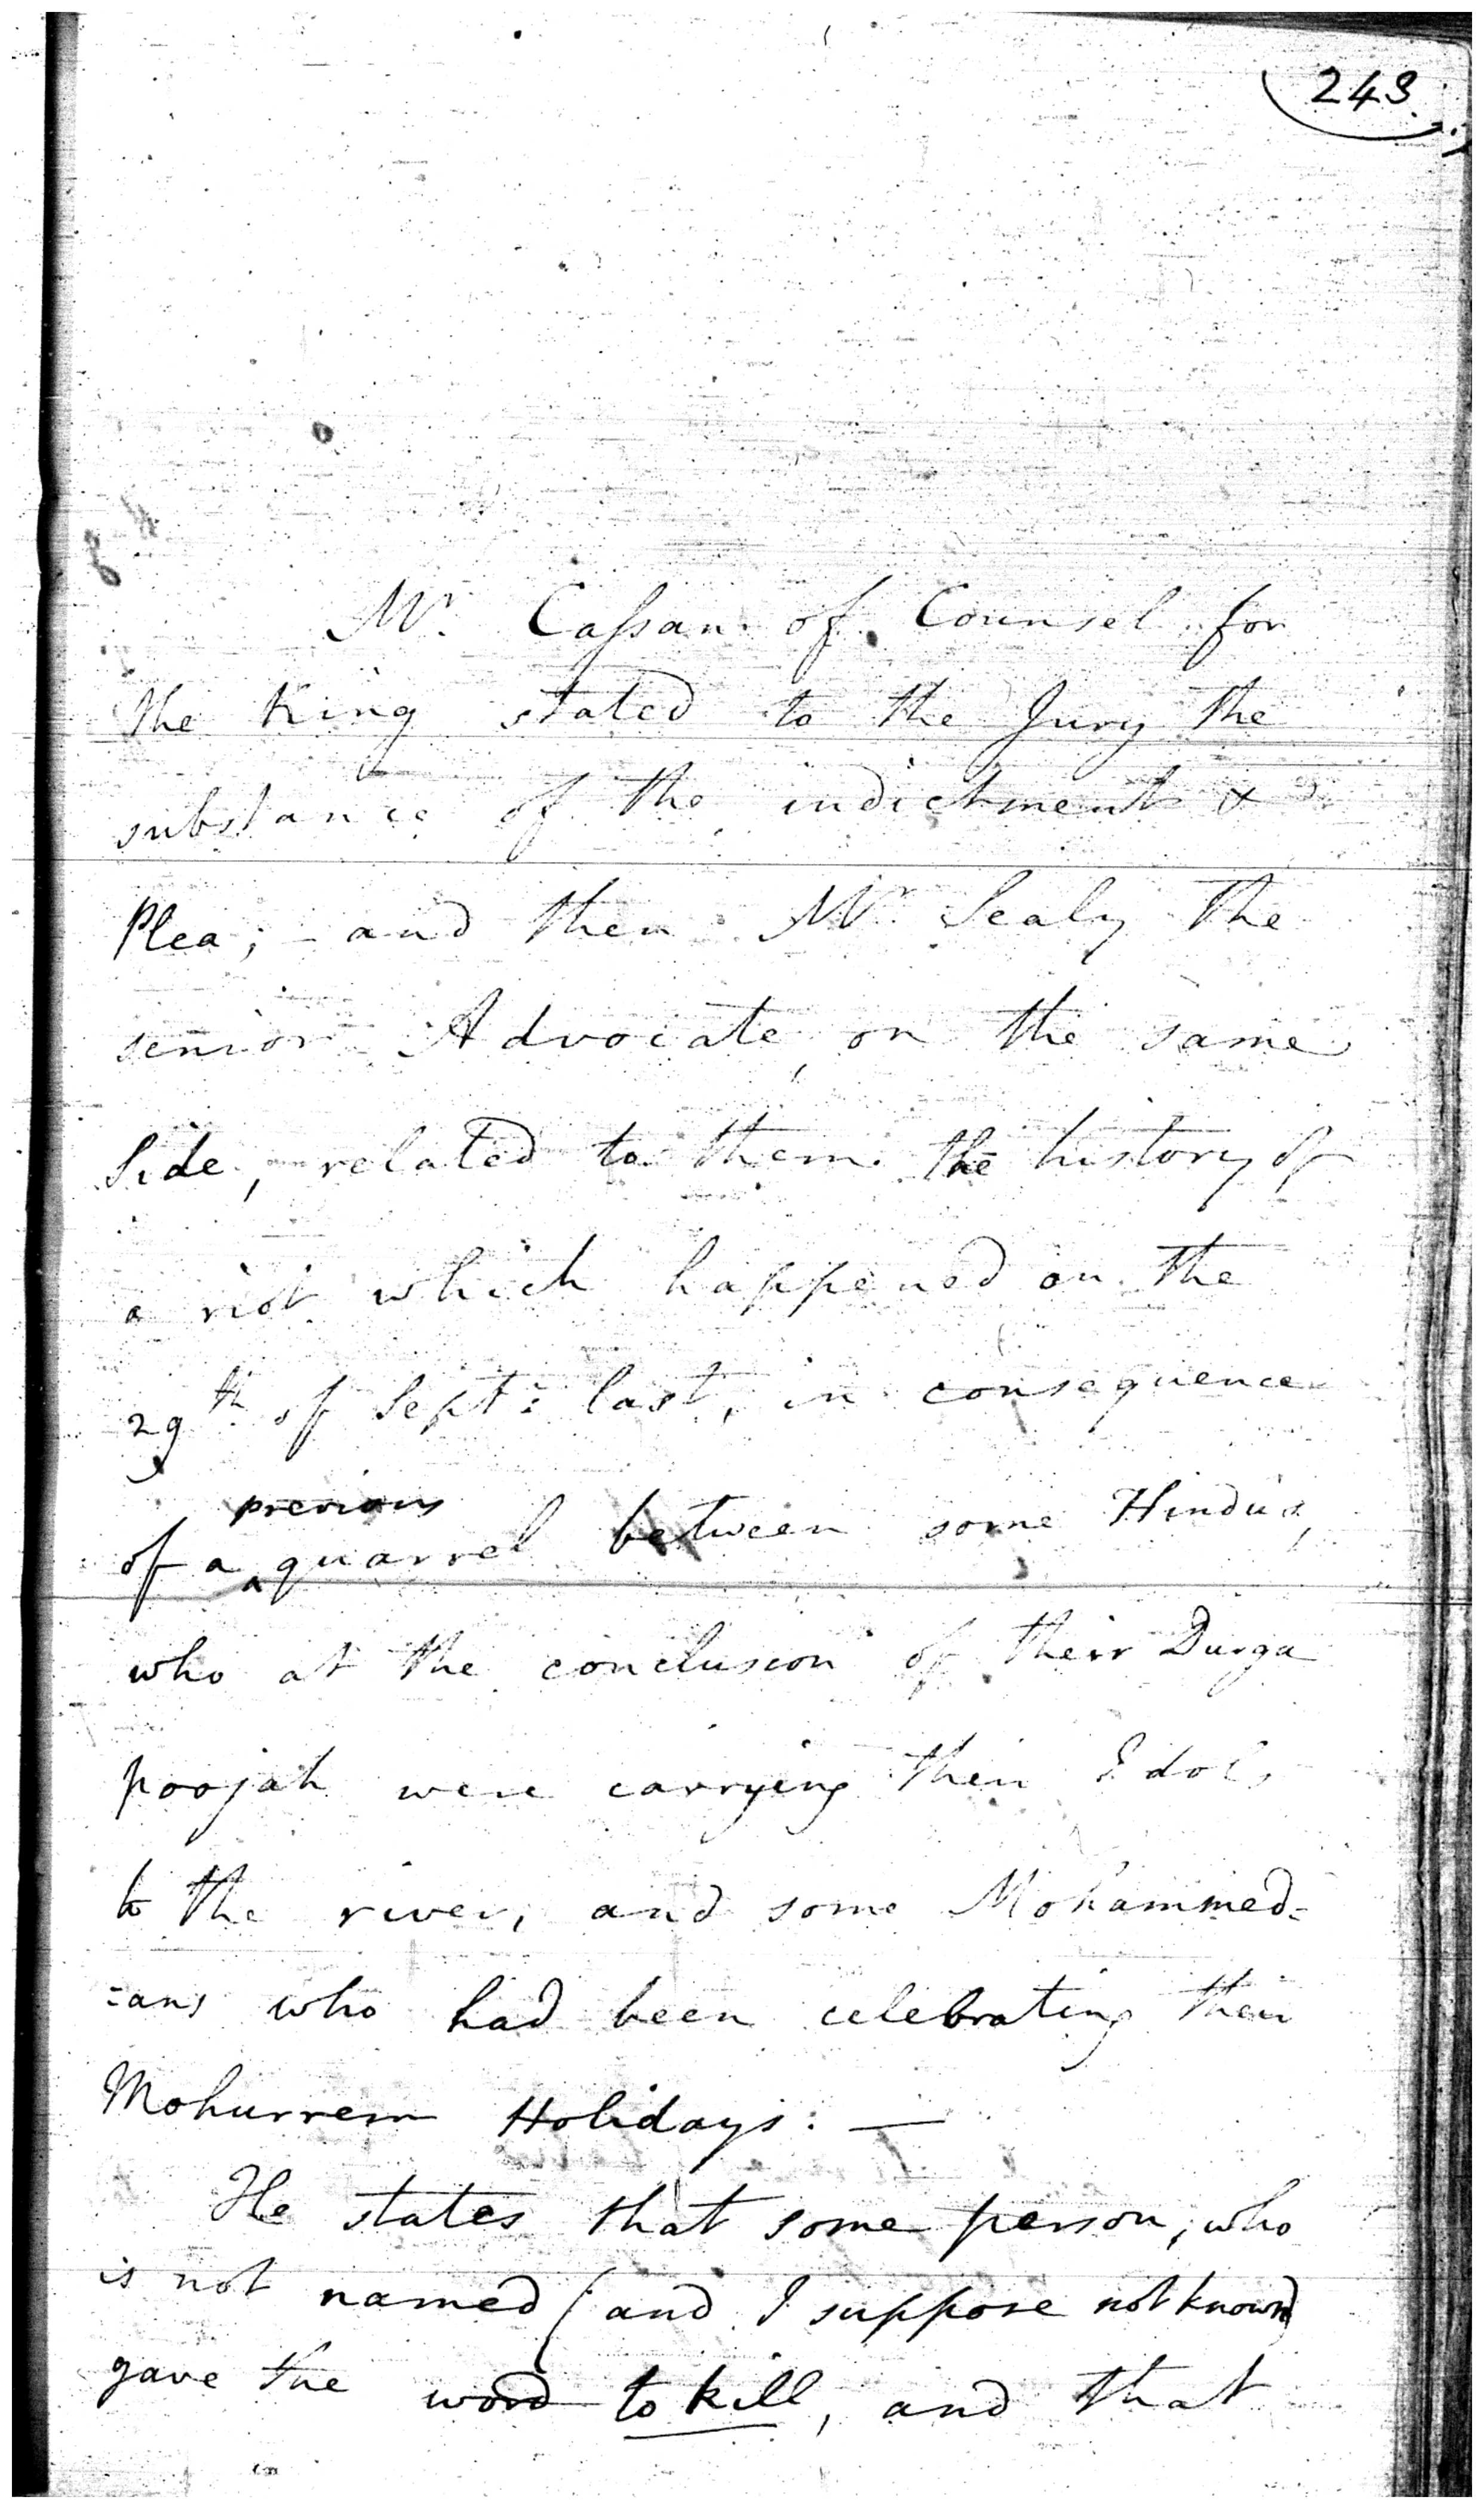 243
Mr. Caſsan of Counsel for
the King stated to the Jury the
substance of the indictment &
Plea; and then Mr. Sealy the
senior Advocate, on the same
Side, related to them the history of
a riot which happened on the
29th of Sept: last, in consequence
previous
of a ^ quarrel between some Hindus,
who at the conclusion of their Durga
poojah were carrying their Idols
to the river, and some Mohammed=
=ans who had been celebrating their
Mohurrem Holidays. —
He states that some person, who
is not named (and I suppose not known)
gave the word to kill, and that